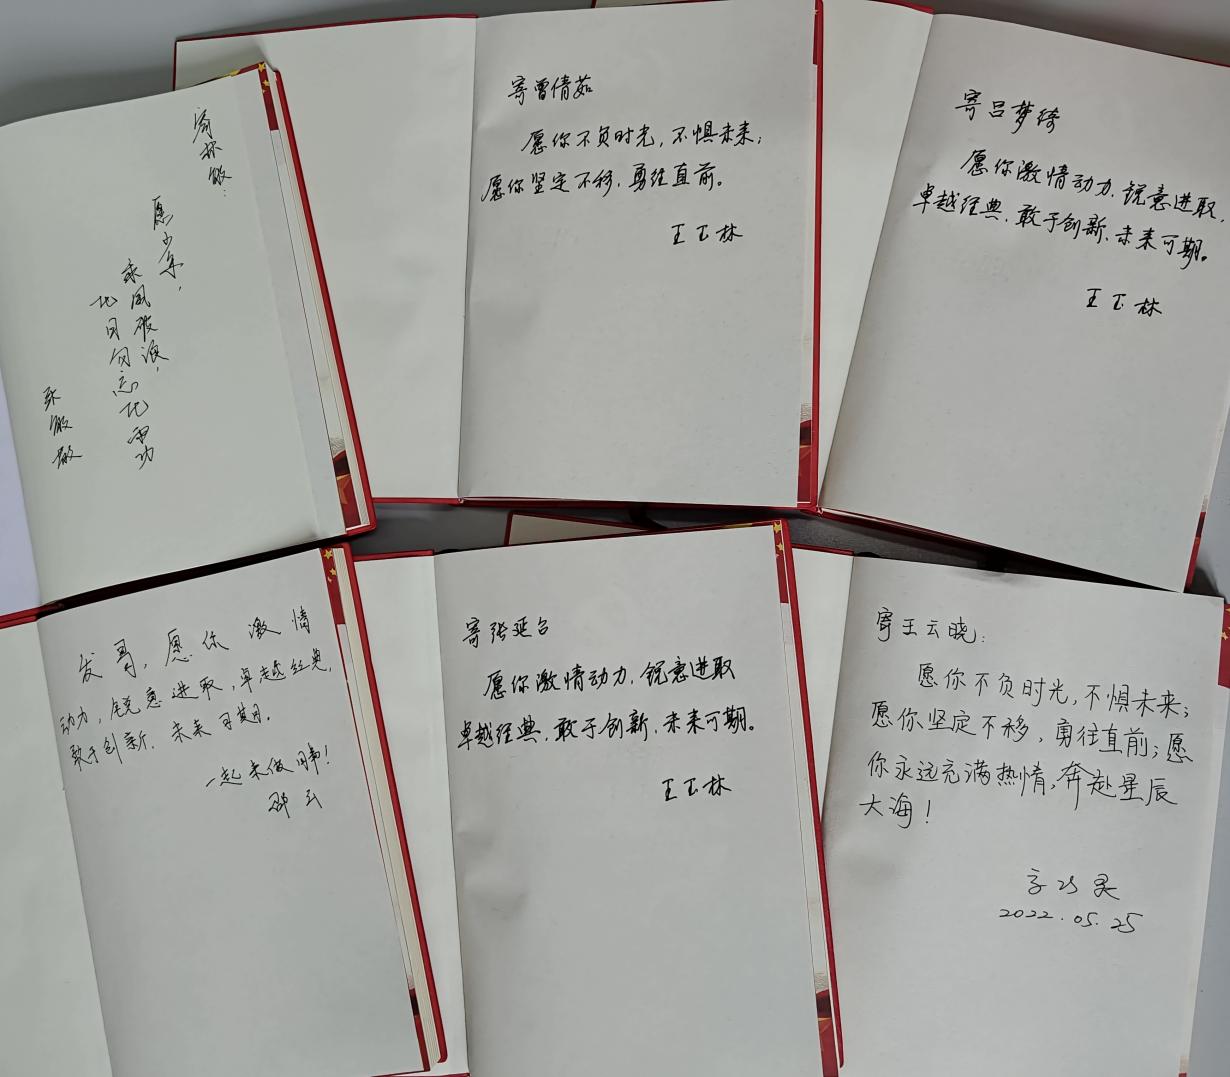 寄林敏：
愿少年，
乘风破浪，
他日勿忘化雨功
寄曾倩茹
愿你不负时光，不惧未来；
愿你坚定不移，勇往直前。
王玉林
寄吕梦绮
愿你激情动力，锐意进取，
卓越经典，敢于创新，未来可期。
王玉林
发哥，愿你激情
动力，锐意进取，卓越经典，
敢于创新，未来可期。
一起来做同事！
邵云
寄张延台
愿你激情动力，锐意进取
卓越经典，敢于创新，未来可期。
王玉林
寄王云晓：
愿你不负时光，不惧未来；
愿你坚定不移，勇往直前；愿
你永远充满热情，奔赴星辰
大海！
2022.05.25